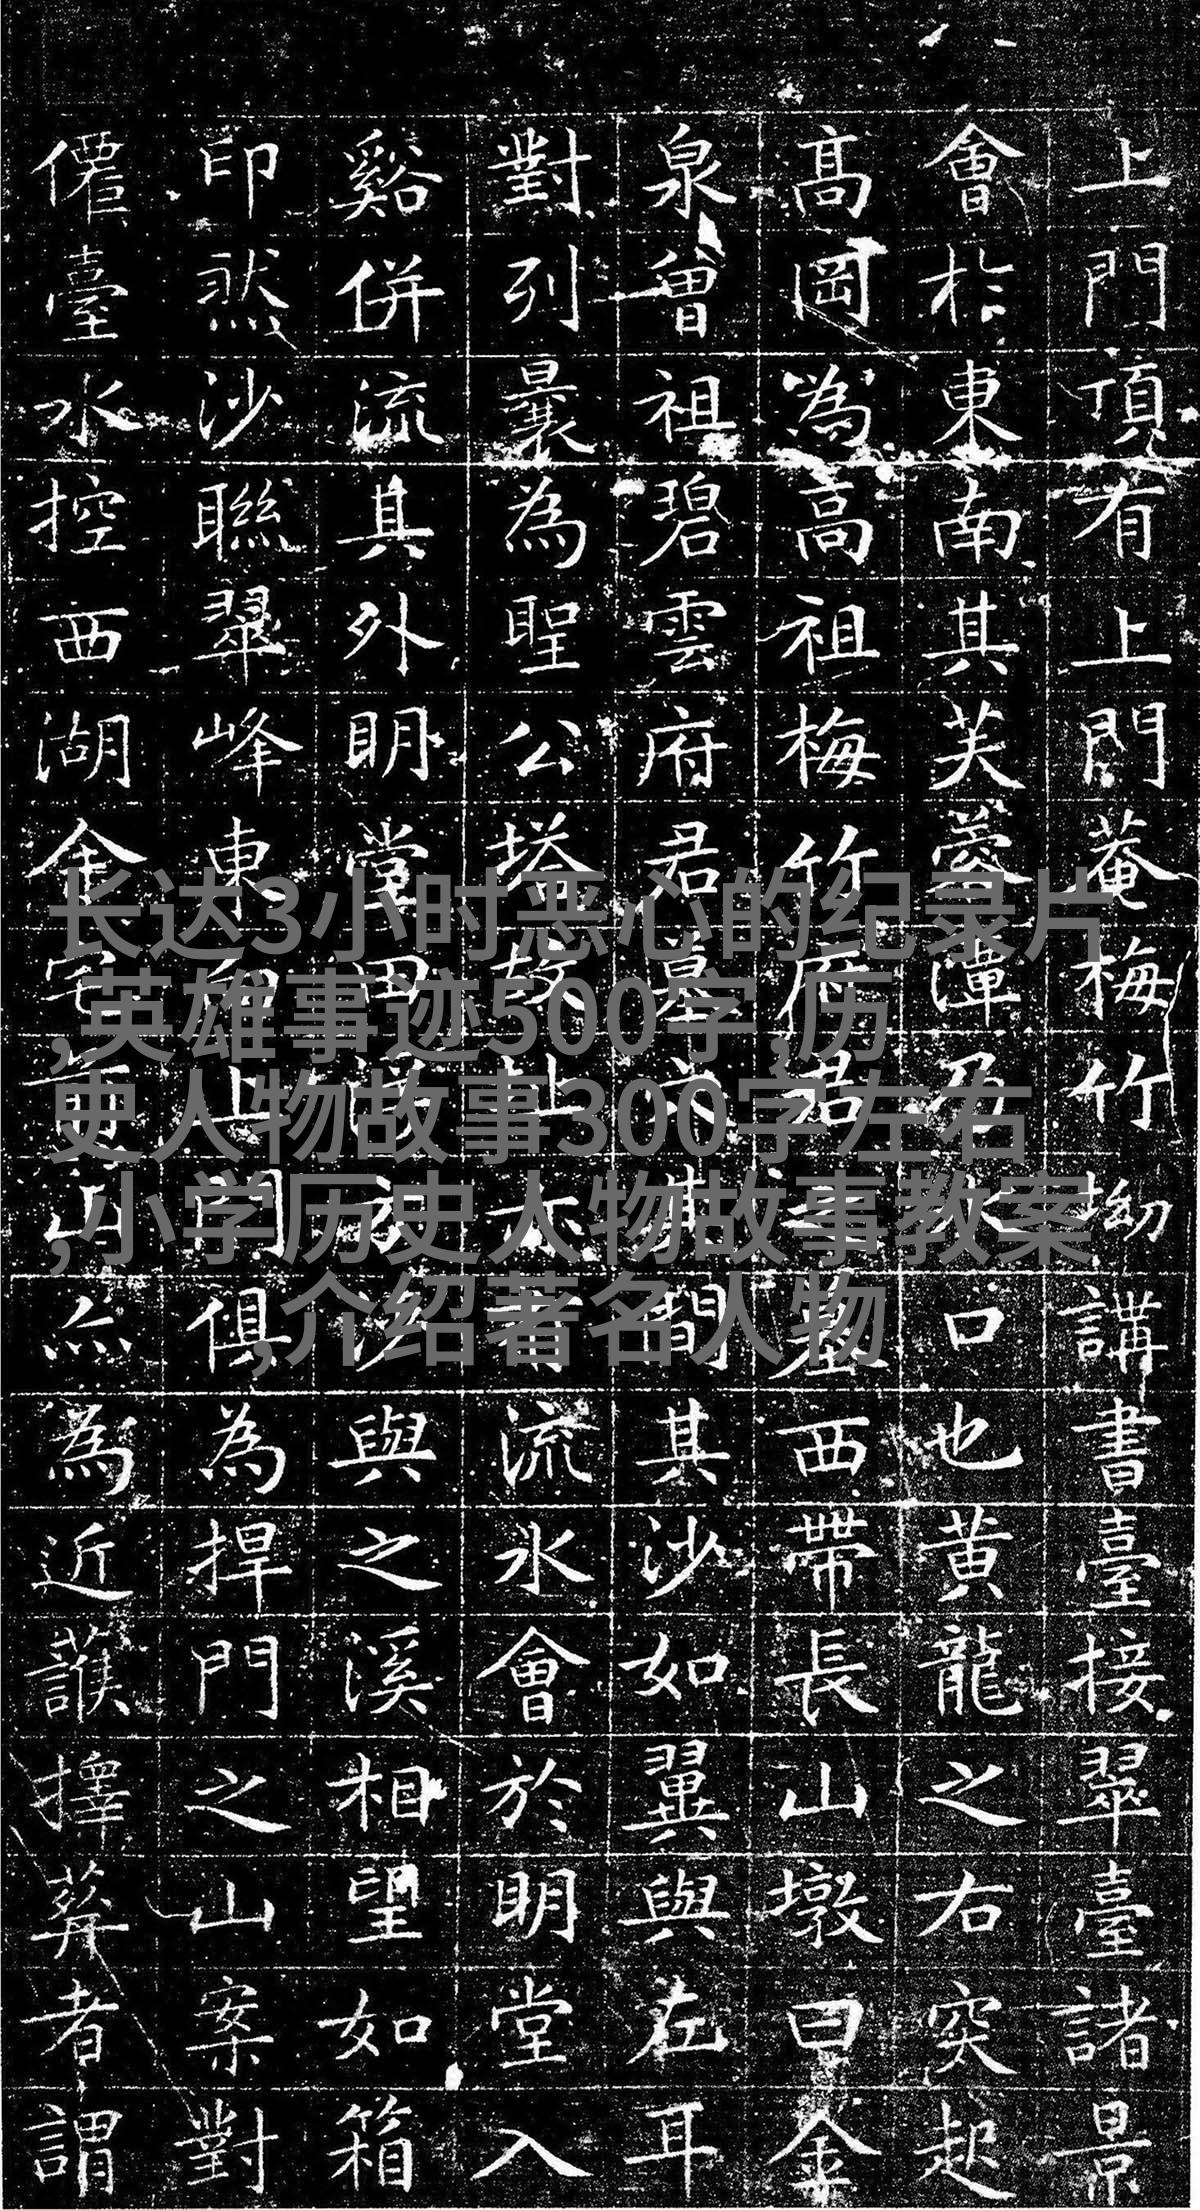 上門頂有上門菴梅竹坳講書臺接翠臺諸景
會扵東南其芙蓉潭乃口也黃龍之右突起
高岡為高祖梅竹府君墓西帶長山墩曰金
泉曾祖碧雲府君墓間其沙如翼與左耳
對列曩為聖公塔故址流水會於明堂入
谿併流其外明堂田與之溪相望如箱
印然沙聯翠峰東上門俱為捍門之山案對
僊臺水控西湖金宅前山為近擇葬者謂
长达3小时恶心的纪录片
,英雄事迹500字,历
史人物故事300字左右
,小学历史人物故事教案
,介绍著名人物